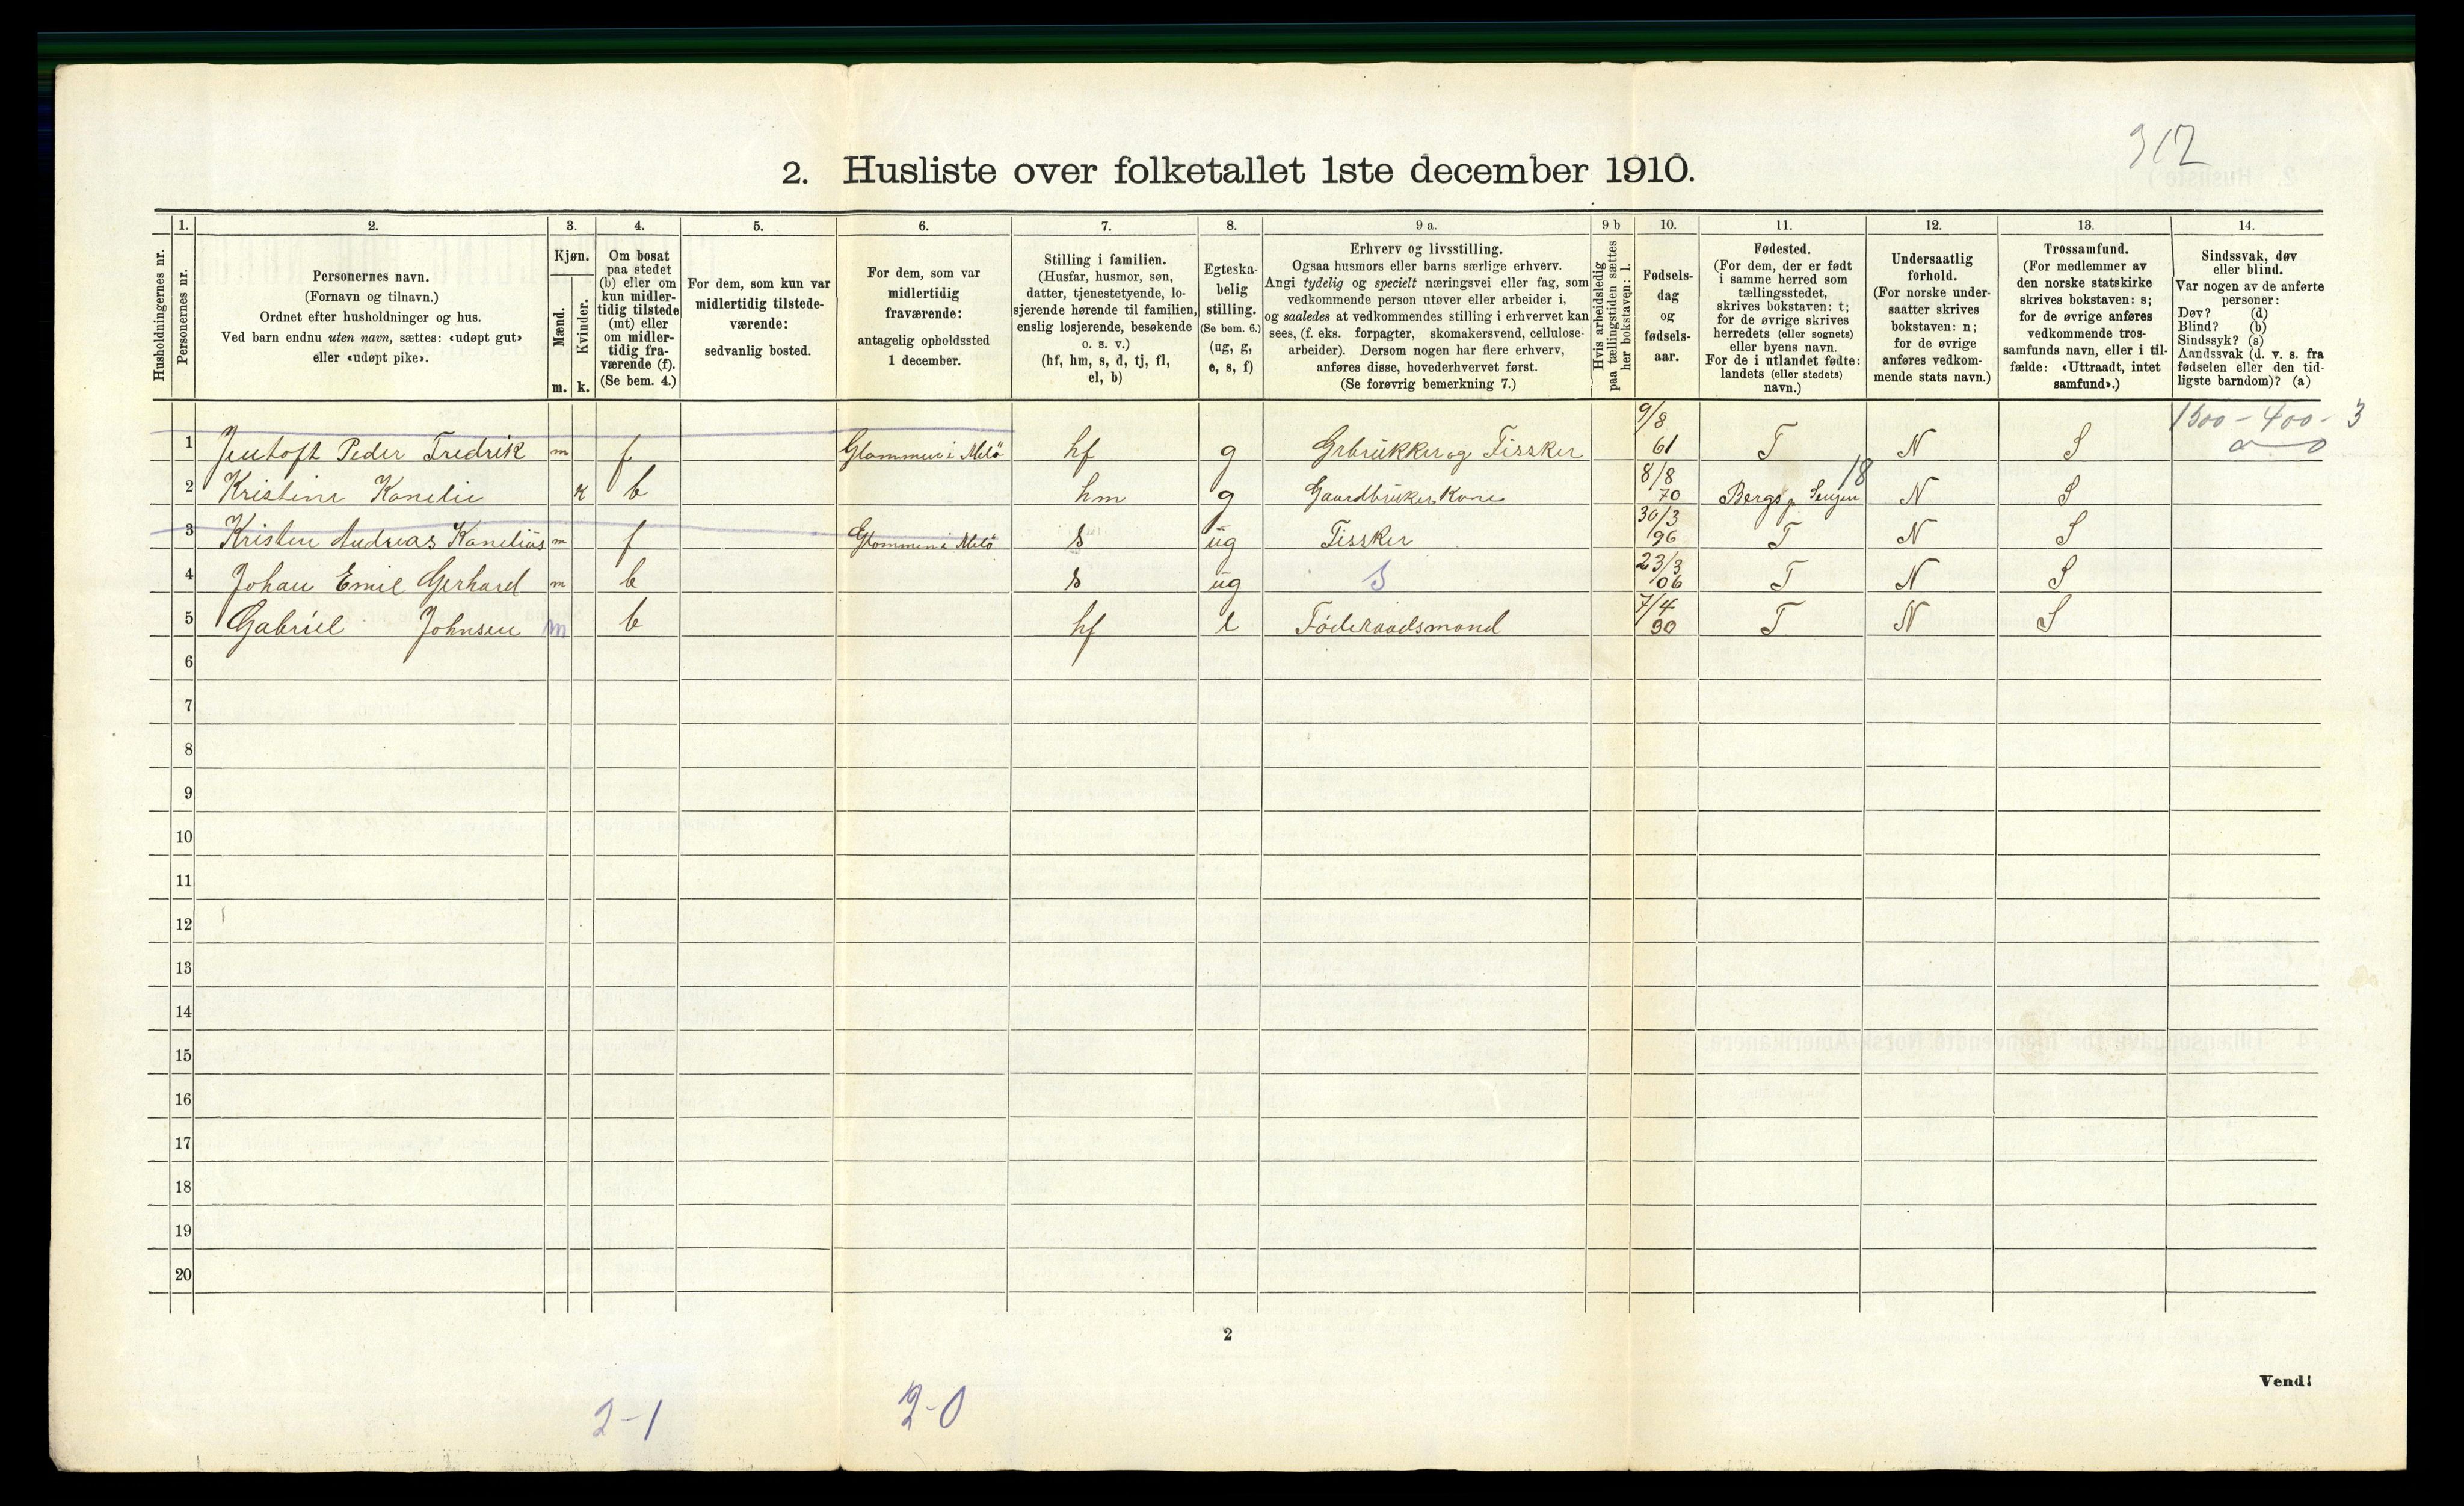 312
2. Husliste over folketallet 1ste december 1910.
Husholdningernes nr.
1.
Personernes nr.
2.
Personernes navn.
(Fornavn og tilnavn.)
Ordnet efter husholdninger og hus.
Ved barn endnu uten navn, sættes: «udøpt gut»
eller «udøpt pike».
3.
Kjøn.
Mænd.
Kvinder.
m. k.
4.
Om bosat
paa stedet
(b) eller om
kun midler-
tidig tilstede
(mt) eller
om midler-
tidig fra-
værende (f).
(Se bem. 4.)
5.
For dem, som kun var
midlertidig tilstede-
værende:
sedvanlig bosted.
6.
For dem, som var
midlertidig
fraværende:
antagelig opholdssted
1 december.
7.
Stilling i familien.
(Husfar, husmor, søn,
datter, tjenestetyende, lo-
sjerende hørende til familien,
enslig losjerende, besøkende
o. s. v.)
(hf, hm, s, d, tj, fl,
el, b)
8.
Egteska-
belig
stilling.
(Se bem. 6.)
(ug, g,
e, s, f)
9 a.
Erhverv og livsstilling.
Ogsaa husmors eller barns særlige erhverv.
Angi tydelig og specielt næringsvei eller fag, som
vedkommende person utøver eller arbeider i,
og saaledes at vedkommendes stilling i erhvervet kan
sees, (f. eks. forpagter, skomakersvend, cellulose-
arbeider). Dersom nogen har flere erhverv,
anføres disse, hovederhvervet først.
(Se forøvrig bemerkning 7.)
9 b
Hvis arbeidsledig
paa tællingstiden sættes
her bokstaven: l.
10.
Fødsels-
dag
og
fødsels-
aar.
11.
Fødested.
(For dem, der er født
i samme herred som
tællingsstedet,
skrives bokstaven: t;
for de øvrige skrives
herredets (eller sognets)
eller byens navn.
For de i utlandet fødte:
landets (eller stedets)
navn.)
12.
Undersaatlig
forhold.
(For norske under-
saatter skrives
bokstaven: n;
for de øvrige
anføres vedkom-
mende stats navn.)
13.
Trossamfund.
(For medlemmer av
den norske statskirke
skrives bokstaven: s;
for de øvrige anføres
vedkommende tros-
samfunds navn, eller i til-
fælde: «Uttraadt, intet
samfund».)
14.
Sindssvak, døv
eller blind.
Var nogen av de anførte
personer:
Døv? (d)
Blind? (b)
Sindssyk? (s)
Aandssvak (d. v. s. fra
fødselen eller den tid-
ligste barndom)? (a)
1500 - 400 - 3
1 Jentoft Peder Fredrik m f Glommen i Melö hf g Grbrukker og Fissker 9/8 61 T N S
2 Kristine Kanelie k b hm g Gaardbruker Kone 8/8 70 Bergs p Senjen 18 N S
3 Kristen Andreas Kanelius m f Glommen i Melö s ug Fissker 30/3 96 T N S
4 Johan Emil Gerhard m b s ug S 23/3 06 T N S
5 Gabriel Johnsen m b hf e Föderaadsmand 7/4 30 T N S
6
7
8
9
10
11
12
13
14
15
16
17
18
19
20
2
Vend!
2-1 2-0